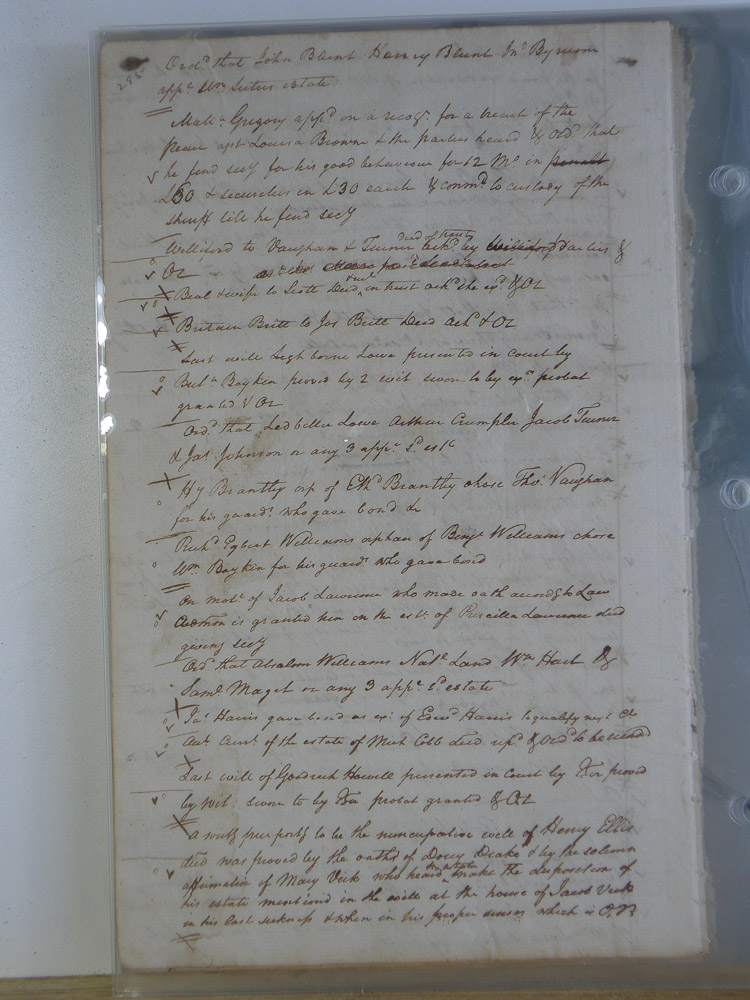 285
Ord.d that John Blunt Henry Blunt Jn.o Bynum
app.r Wm estate
Gregory app.d on a recog.e for a breach of the
peace ag.st Louisa Browne & the parties heard & Ord that
he find sec.y for his good behaviour for 12 M.o in
£50 & securities in £30 each & comm.d to custody of the
sheriff till he find sec.y
to Vaughan & Turner deed of trust ack.d by parties &
OR
Beal & wife to Scott Deed in trust ack.d &OR
Britain Britt to Jos Britt Deed ack.d & OR
Last will Leighborne Lowe presented in court by
Boykin proved by 2 wit sworn to by ex.or probat
granted & OR
Ord.d that Ledbetter Lowe Arthur Crumpler Jacob Turner
& Ja.s Johnson or any 3 app.r s.d est.e
Hy Brantley orp of Eth.d Brantley chose Tho.s Vaughan
for his guard.n who gave bond &c
Rich.d Egbert Williams orphan of Benj.a Williams chose
Wm Boykin for his guard.n who gave bond
On mot.n of Jacob Lawrence who made oath accord.g to Law
is granted him on the est.e of Priscilla Lawrence decd
giving sec.y
Ord that Absalom Williams Nat.l Land Wm Hart &
Sam.l Maget or any 3 app.r s.d estate
Ja.s Harris gave bond as ex.r of Edw.d Harris to qualify next Ct
of the estate of Cobb decd & Ord.d to be
Last will of Goodrich Howell presented in Court by Exor proved
by wit: sworn to by Exor probat granted & OR
A writ.g purport.g to be the nuncupative will of Henry Ellis
decd was proved by the oaths of Drake & by the solemn
affirmation of Mary Vick who heard the testator make the disposition of
his estate mentiond in the will at the house of Jacob Vick
in his last sickness & when in his proper senses which is O.R